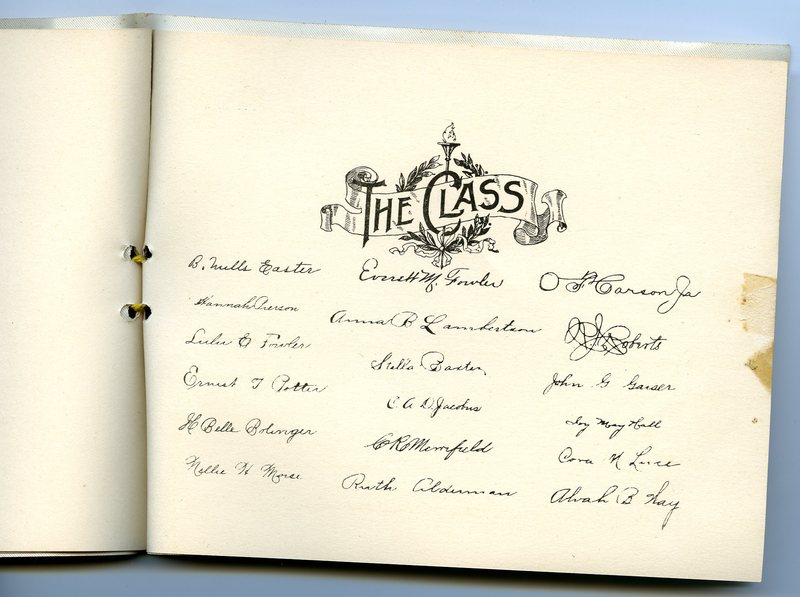 The Class
B. Mills Easter
Hannah Pierson
Lulu G Fowler
Ernest T Potter
H Belle Bolinger
Nellie H Morse
Everett M. Fowler
Anna B Lambertson
Stella Baxter
C A D Jacobus
C R Merrifield
Ruth Alderman
O P Carson Jr
Roberts
John G Gaiser
Ivy May Hall
Cora N Luce
Alvah B Way